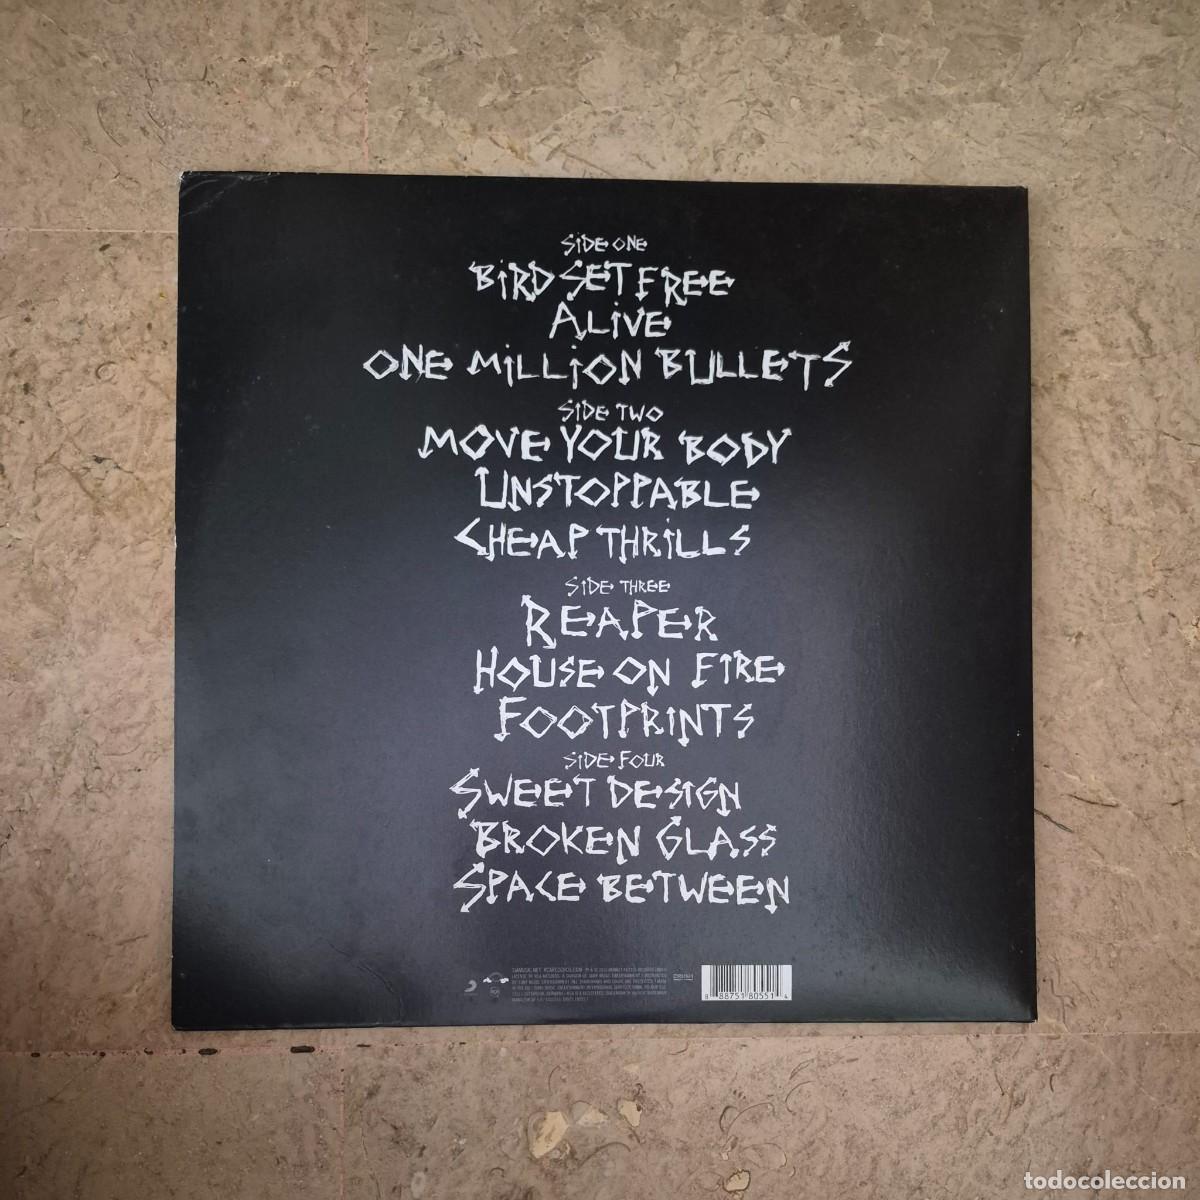 SIDE ONE
BIRD SET FREE
ALIVE
ONE MILLION BULLETS
SIDE TWO
MOVE YOUR BODY
UNSTOPPABLE
CHEAP THRILLS
SIDE THREE
REAPER
HOUSE ON FIRE
FOOTPRINTS
SIDE FOUR
SWEET DESIGN
BROKEN GLASS
SPACE BETWEEN
8 88751 80551 4
todocoleccion